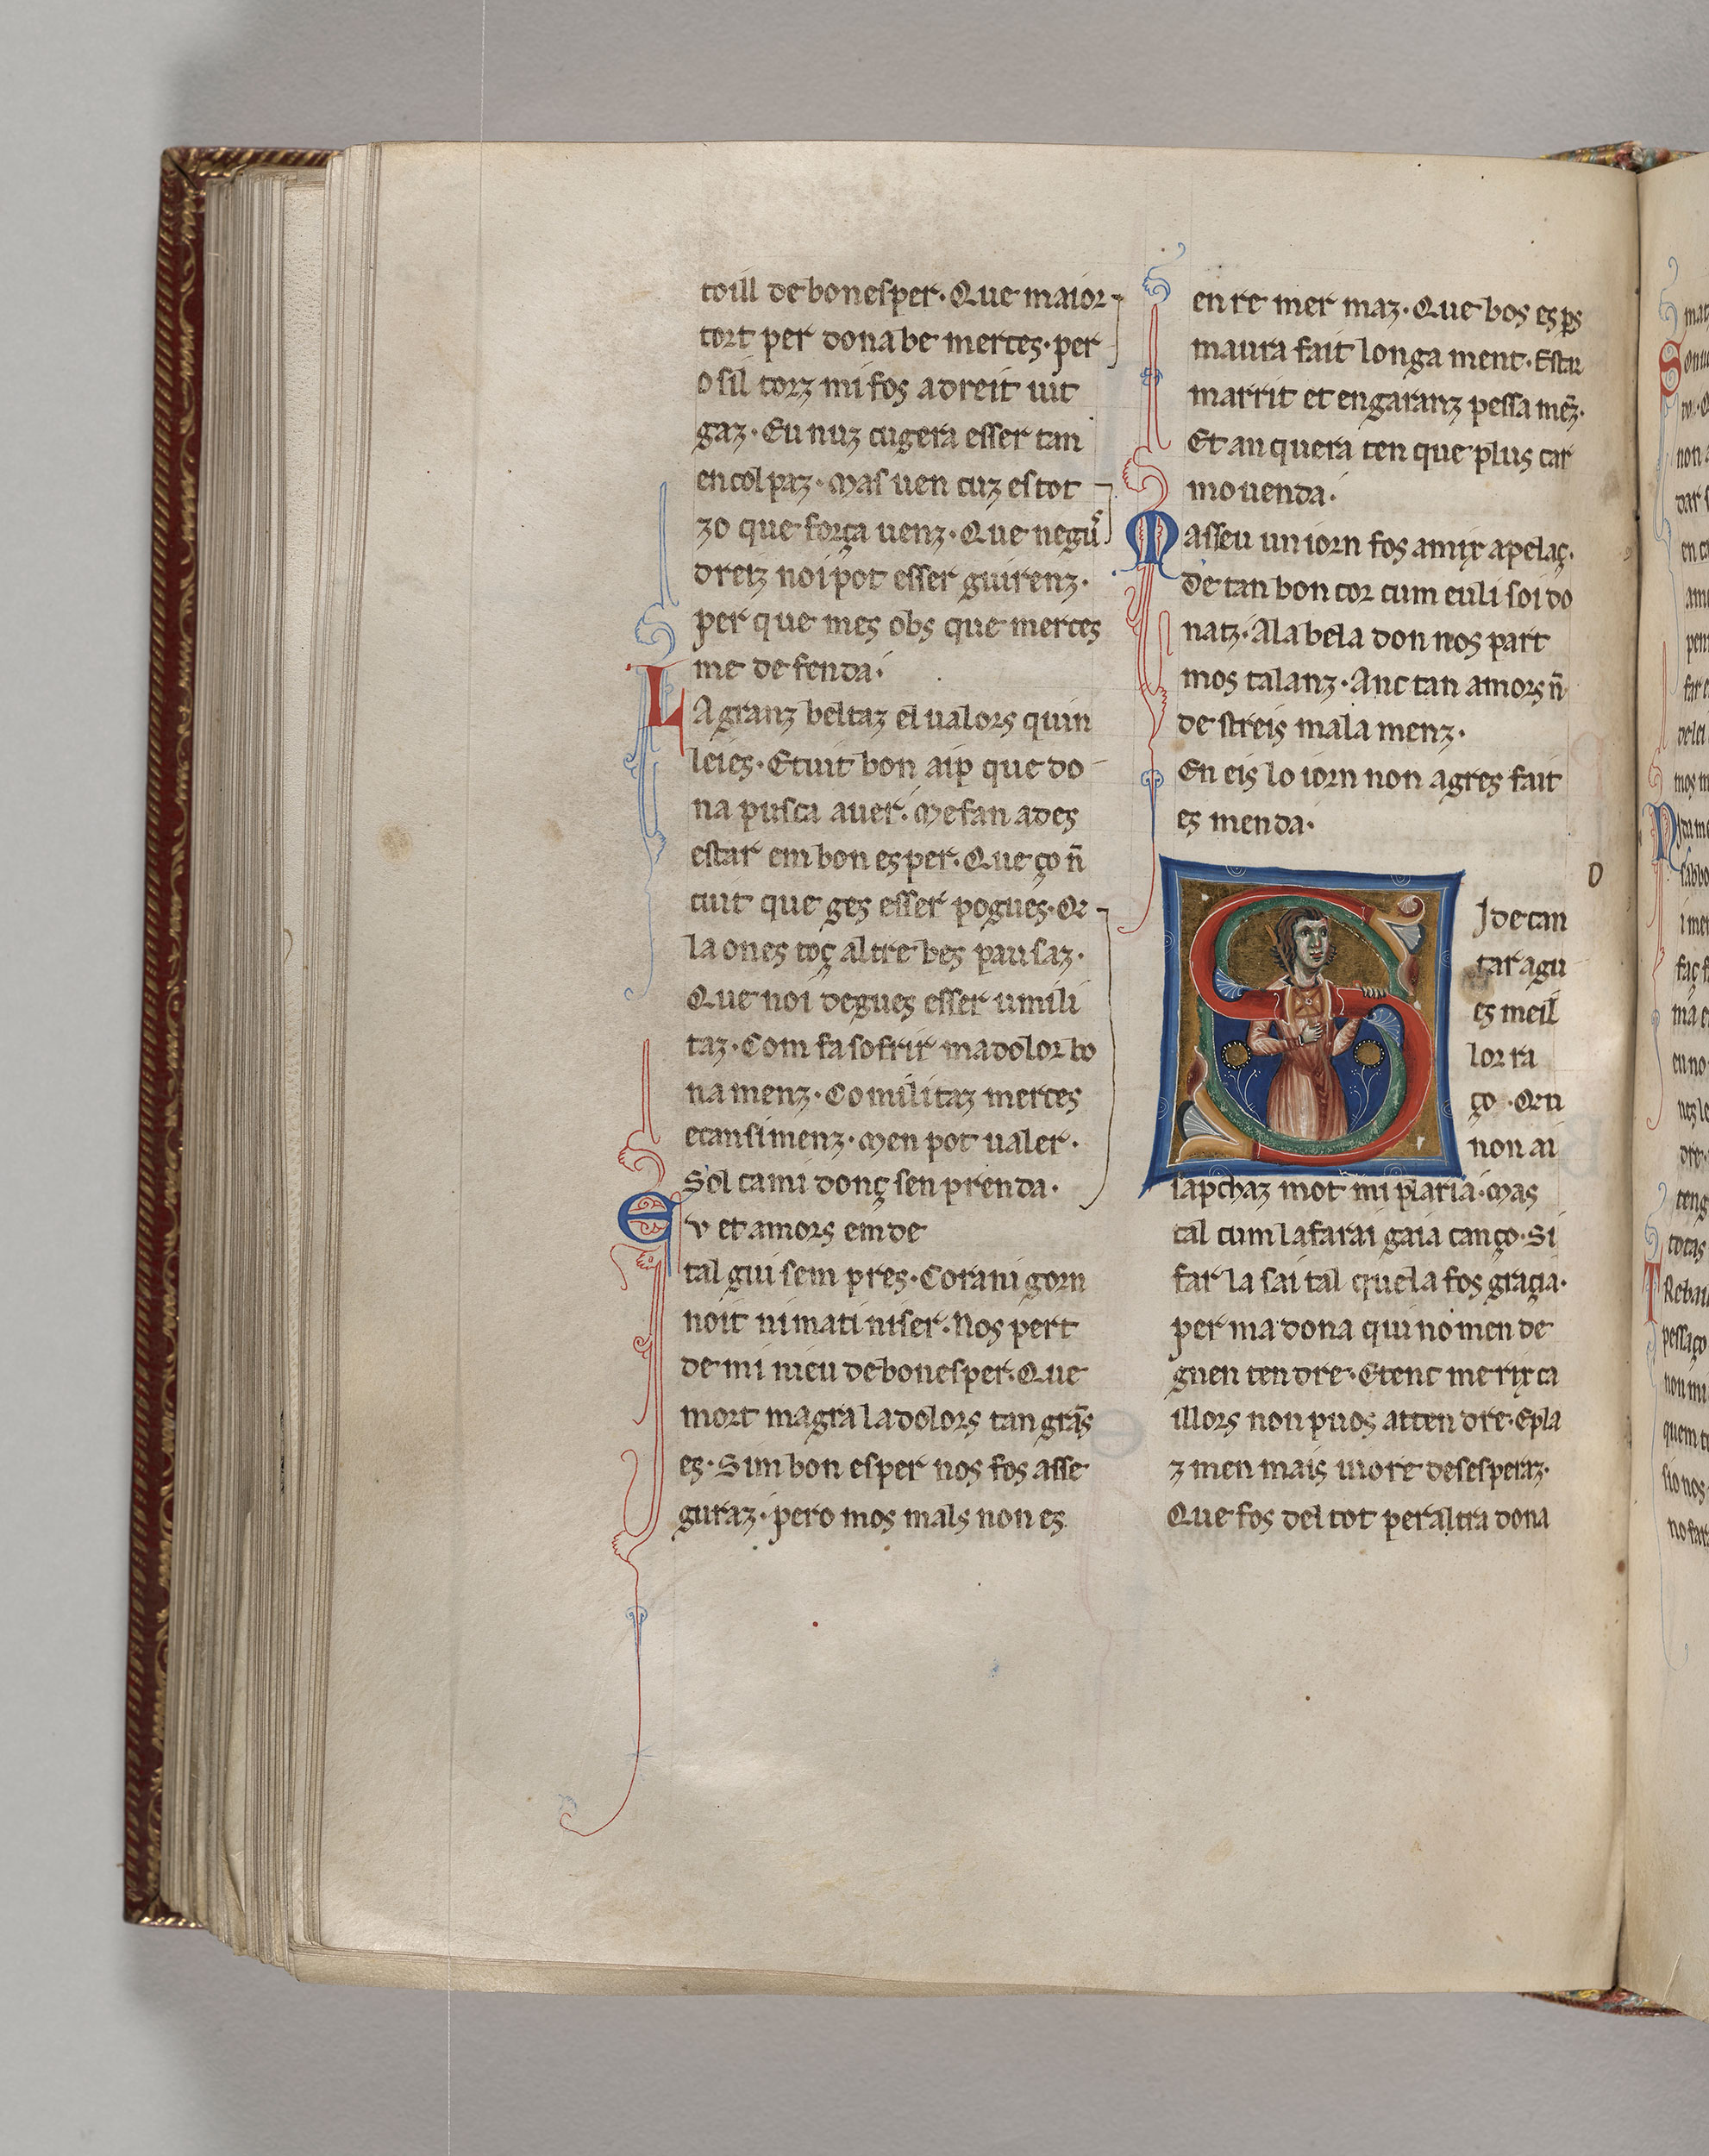 toill de bonesper. Que maior
tort per dona be merceς. per
o sil torz mi foς a dreit iut
gaz. Eu nuz cugera esser tan
encolpaz. Mas uen cuz es tot
zo que força uenz. Que negu͂s
dreiz noi pot esser guirenz.
per que meς obs que merceς
me defenda.
LA granz beltaz el ualors quin
leieς. E tuit bon aip que do
na pusca auer. Me fan adeς
estar em bon eς per. Que ço n̄
cuit que geς esser pogueς. Or
la oneς toç altre beς pausaz.
Que noi degueς esser umili
taz. Com fa sofrir ma dolor bo
na menz. Comilitaz merceς
e causimenz. Men pot ualer.
Sol ca mi donç sen prenda.
Ev et amors em de
tal guisem preς. Cora ni gorn
noit ni mati ni ser. Noς pert
de mi nieu de bonesper. Que
mort magra la dolors tan grās
eς. Sim bon esper noς foς asse
guraz. pero moς mals non eς
en re mer maz. Que boς eς ꝑs
maura fait longa ment. Estar
marrit et en garanz pessa mēz.
Et an quera ten que pluς car
mo uenda.
Masseu un iorn foς amix apelaç.
de tan bon cor cum eu li soi do
natz. A la bela don noς part
moς talanz. Anc tan amors n̄
de streiς mala menz.
En eiς lo iorn non agreς fait
eς menda.
o
SI de can
tar agu
eς meil
lor ra
ço. Oru
non ai
sapchaz mot mi plaria. Mas
tal cum la farai gaia canço. Si
far la sai tal que la foς graçia.
per ma dona qui no men de
gnen tendre. E tenc me rix ca
illors non puoς attendre. E pla
z men maiς uiore desesperaz.
Que foς del tot per altra dona